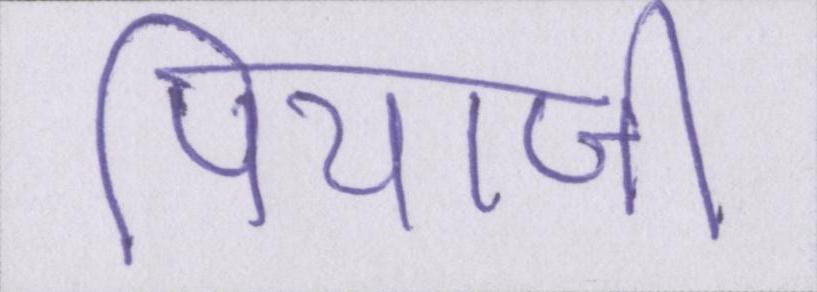 पियाजी